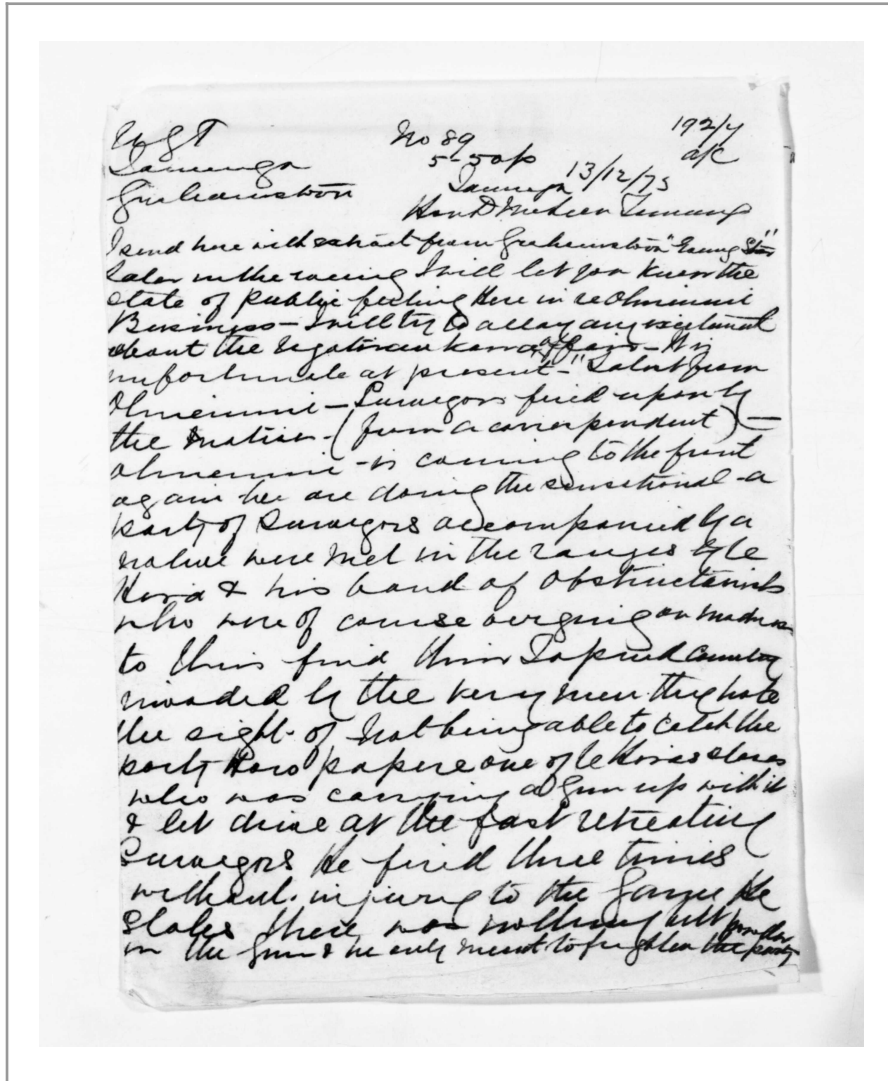 NZGT No 89 192/4
Tauranga 5-50p a/c
Grahamstown Tauranga 13/12/75
Hon D McLean Timaru
I send herewith extract from Grahamstown "Evening Star"
Later in the evening I will let you know the
state of public feeling here in re Ohinemuri
Business - I will try to allay any excitement
about the affair - It is
unfortunate at present - "Latest from
Ohinemuri - Surveyors fired upon by
the Natives - (from a correspondent) -
Ohinemuri - is coming to the front
again we are doing the sensational - a
party of Surveyors accompanied by a
native were met in the ranges by Te
Hira & his band of obstructionists
who were of course verging on madness
to thus find their Tapued Country
invaded by the very men they hate
the sight of Not being able to catch the
party one of Te Hiras slaves
who was carrying a Gun up with it
& let drive at the fast retreating
Surveyors He fired three times
without injury to the Game He
states there was nothing but powder
in the Gun & he only meant to frighten the party